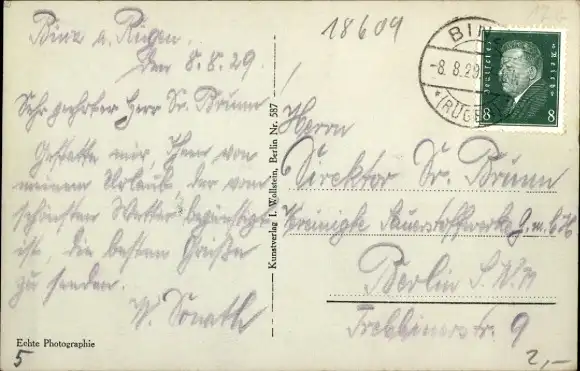 18609
Binz a. Rügen.
den 8.8.29.
Sehr geehrter Herr Dr. Brunn!
Gestatte mir Ihnen von
meinem Urlaub der vom
schönsten Wetter begünstigt
ist, die besten Grüße
zu senden.
W.
Echte Photographie
5
Kunstverlag I. Wollstein, Berlin Nr. 587
BINZ
-8.8.29.
*(RÜGEN)
Deutsches Reich
8 8
Herrn
Direktor Dr. Brunn
Vereinigte Sauerstoffwerke G.m.b.H
Berlin S.W.
Trebbinerstr. 9
2,-